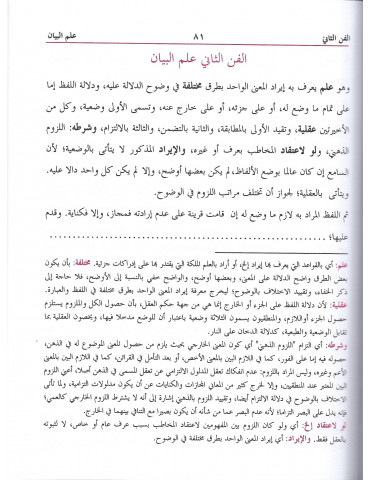 الفن الثاني ٨١ علم البيان
الفن الثاني علم البيان
وهو علم يعرف به إيراد المعنى الواحد بطرق مختلفة في وضوح الدلالة عليه، ودلالة اللفظ إما
على تمام ما وضع له، أو على جزئه، أو على خارج عنه، وتسمى الأولى وضعية، وكل من
الأخيرتين عقلية، وتقيد الأولى بالمطابقة، والثانية بالتضمن، والثالثة بالالتزام، وشرطه: اللزوم
الذهني، ولو لاعتقاد المخاطب بعرف أو غيره، والإيراد المذكور لا يتأتى بالوضعية؛ لأن
السامع إن كان عالما بوضع الألفاظ، لم يكن بعضها أوضح، وإلا لم يكن كل واحد دالا عليه.
ويتأتى بالعقلية؛ لجواز أن تختلف مراتب اللزوم في الوضوح.
ثم اللفظ المراد به لازم ما وضع له إن قامت قرينة على عدم إرادته فمجاز، وإلا فكناية. وقدم
عليها؛
علم: أي بالقواعد التي يعرف بها إيراد إلخ، أو أراد بالعلم الملكة التي يقتدر بها على إدراكات جزئية. مختلفة: بأن يكون
بعض الطرق واضح الدلالة على المعنى، وبعضها أوضح، والواضح خفي بالنسبة إلى الأوضح، فلا حاجة إلى
ذكر الخفاء، وتقييد الاختلاف بالوضوح؛ ليخرج معرفة إيراد المعنى الواحد بطرق مختلفة في اللفظ والعبارة.
عقلية: لأن دلالة اللفظ على الجزء أو الخارج إنما هي من جهة حكم العقل، بأن حصول الكل والملزوم يستلزم
حصول الجزء أواللازم، والمنطقيون يسمون الثلاثة وضعية باعتبار أن للوضع مدخلا فيها، ويخصون العقلية بما
تقابل الوضعية والطبعية، كدلالة الدخان على النار.
وشرطه: أي التزام "اللزوم الذهني" أي كون المعنى الخارجي بحيث يلزم من حصول المعنى الموضوع له في الذهن،
حصوله فيه إما على الفور، كما في اللازم البين بالمعنى الأخص، أو بعد التأمل في القرائن، كما في اللازم البين بالمعنى
الأعم وغيره، وليس المراد باللزوم: عدم انفكاك تعقل المدلول الالتزامي عن تعقل المسمى في الذهن أصلا، أعني اللزوم
البين المعتبر عند المنطقيين، وإلا لخرج كثير من معاني المجازات والكنايات عن أن يكون مدلولات التزامية، ولما تأتى
الاختلاف بالوضوح في دلالة الالتزام أيضا، وتقييد اللزوم بالذهني إشارة إلى أنه لا يشترط اللزوم الخارجي كالعمى؛
فإنه يدل على البصر التزاما؛ لأنه عدم البصر عما من شأنه أن يكون بصيرا مع التنافي بينهما في الخارج.
لو لاعتقاد إلخ: أي ولو كان اللزوم بين المفهومين لاعتقاد المخاطب بسبب عرف عام أو خاص، لا لثبوته
بالعقل فقط. والإيراد: أي إيراد المعنى الواحد بطرق مختلفة في الوضوح.